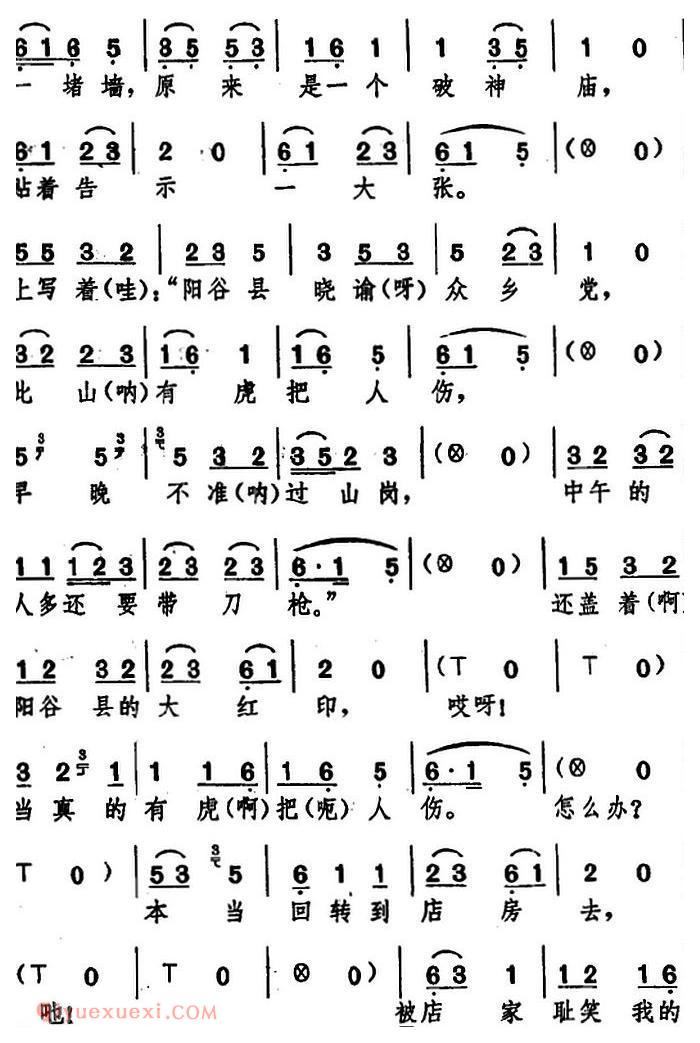 6 1 6 5 | 3 5 5 3 | 1 6 1 | 1 3 5 | 1 0
一 堵 墙，原 来 是 一 个 破 神 庙，
6 1 2 3 | 2 0 | 6 1 2 3 | 6 1 5 | (⊗ 0)
贴着 告 示 一 大 张。
5 5 3 2 | 2 3 5 | 3 5 3 | 5 2 3 | 1 0
上写 着(哇)：“阳谷 县 晓 谕(呀) 众 乡 党，
3 2 2 3 | 1 6 1 | 1 6 5 | 6 1 5 | (⊗ 0)
此 山(呐) 有 虎 把 人 伤，
5 3 5 3 | 3 5 3 2 | 3 5 2 3 | (⊗ 0) | 3 2 3 2
早 晚 不 准(呐) 过 山 岗， 中午 的
1 1 1 2 3 | 2 3 2 3 | 6 · 1 5 | (⊗ 0) | 1 5 3 2
人多 还 要 带 刀 枪。” 还盖 着(啊)
1 2 3 2 | 2 3 6 1 | 2 0 | (T 0 | T 0)
阳谷 县的 大 红 印， 哎呀！
3 2 3 1 | 1 1 6 | 1 6 5 | 6 · 1 5 | (⊗ 0
当 真 的 有 虎(啊) 把(呃) 人 伤。 怎么办？
T 0) | 5 3 3 5 | 6 1 1 | 2 3 6 1 | 2 0
本 当 回 转 到 店 房 去，
(T 0 | T 0 | ⊗ 0) | 6 3 1 | 1 2 1 6
吔！ 被店 家 耻笑 我的
yuexuexi.com